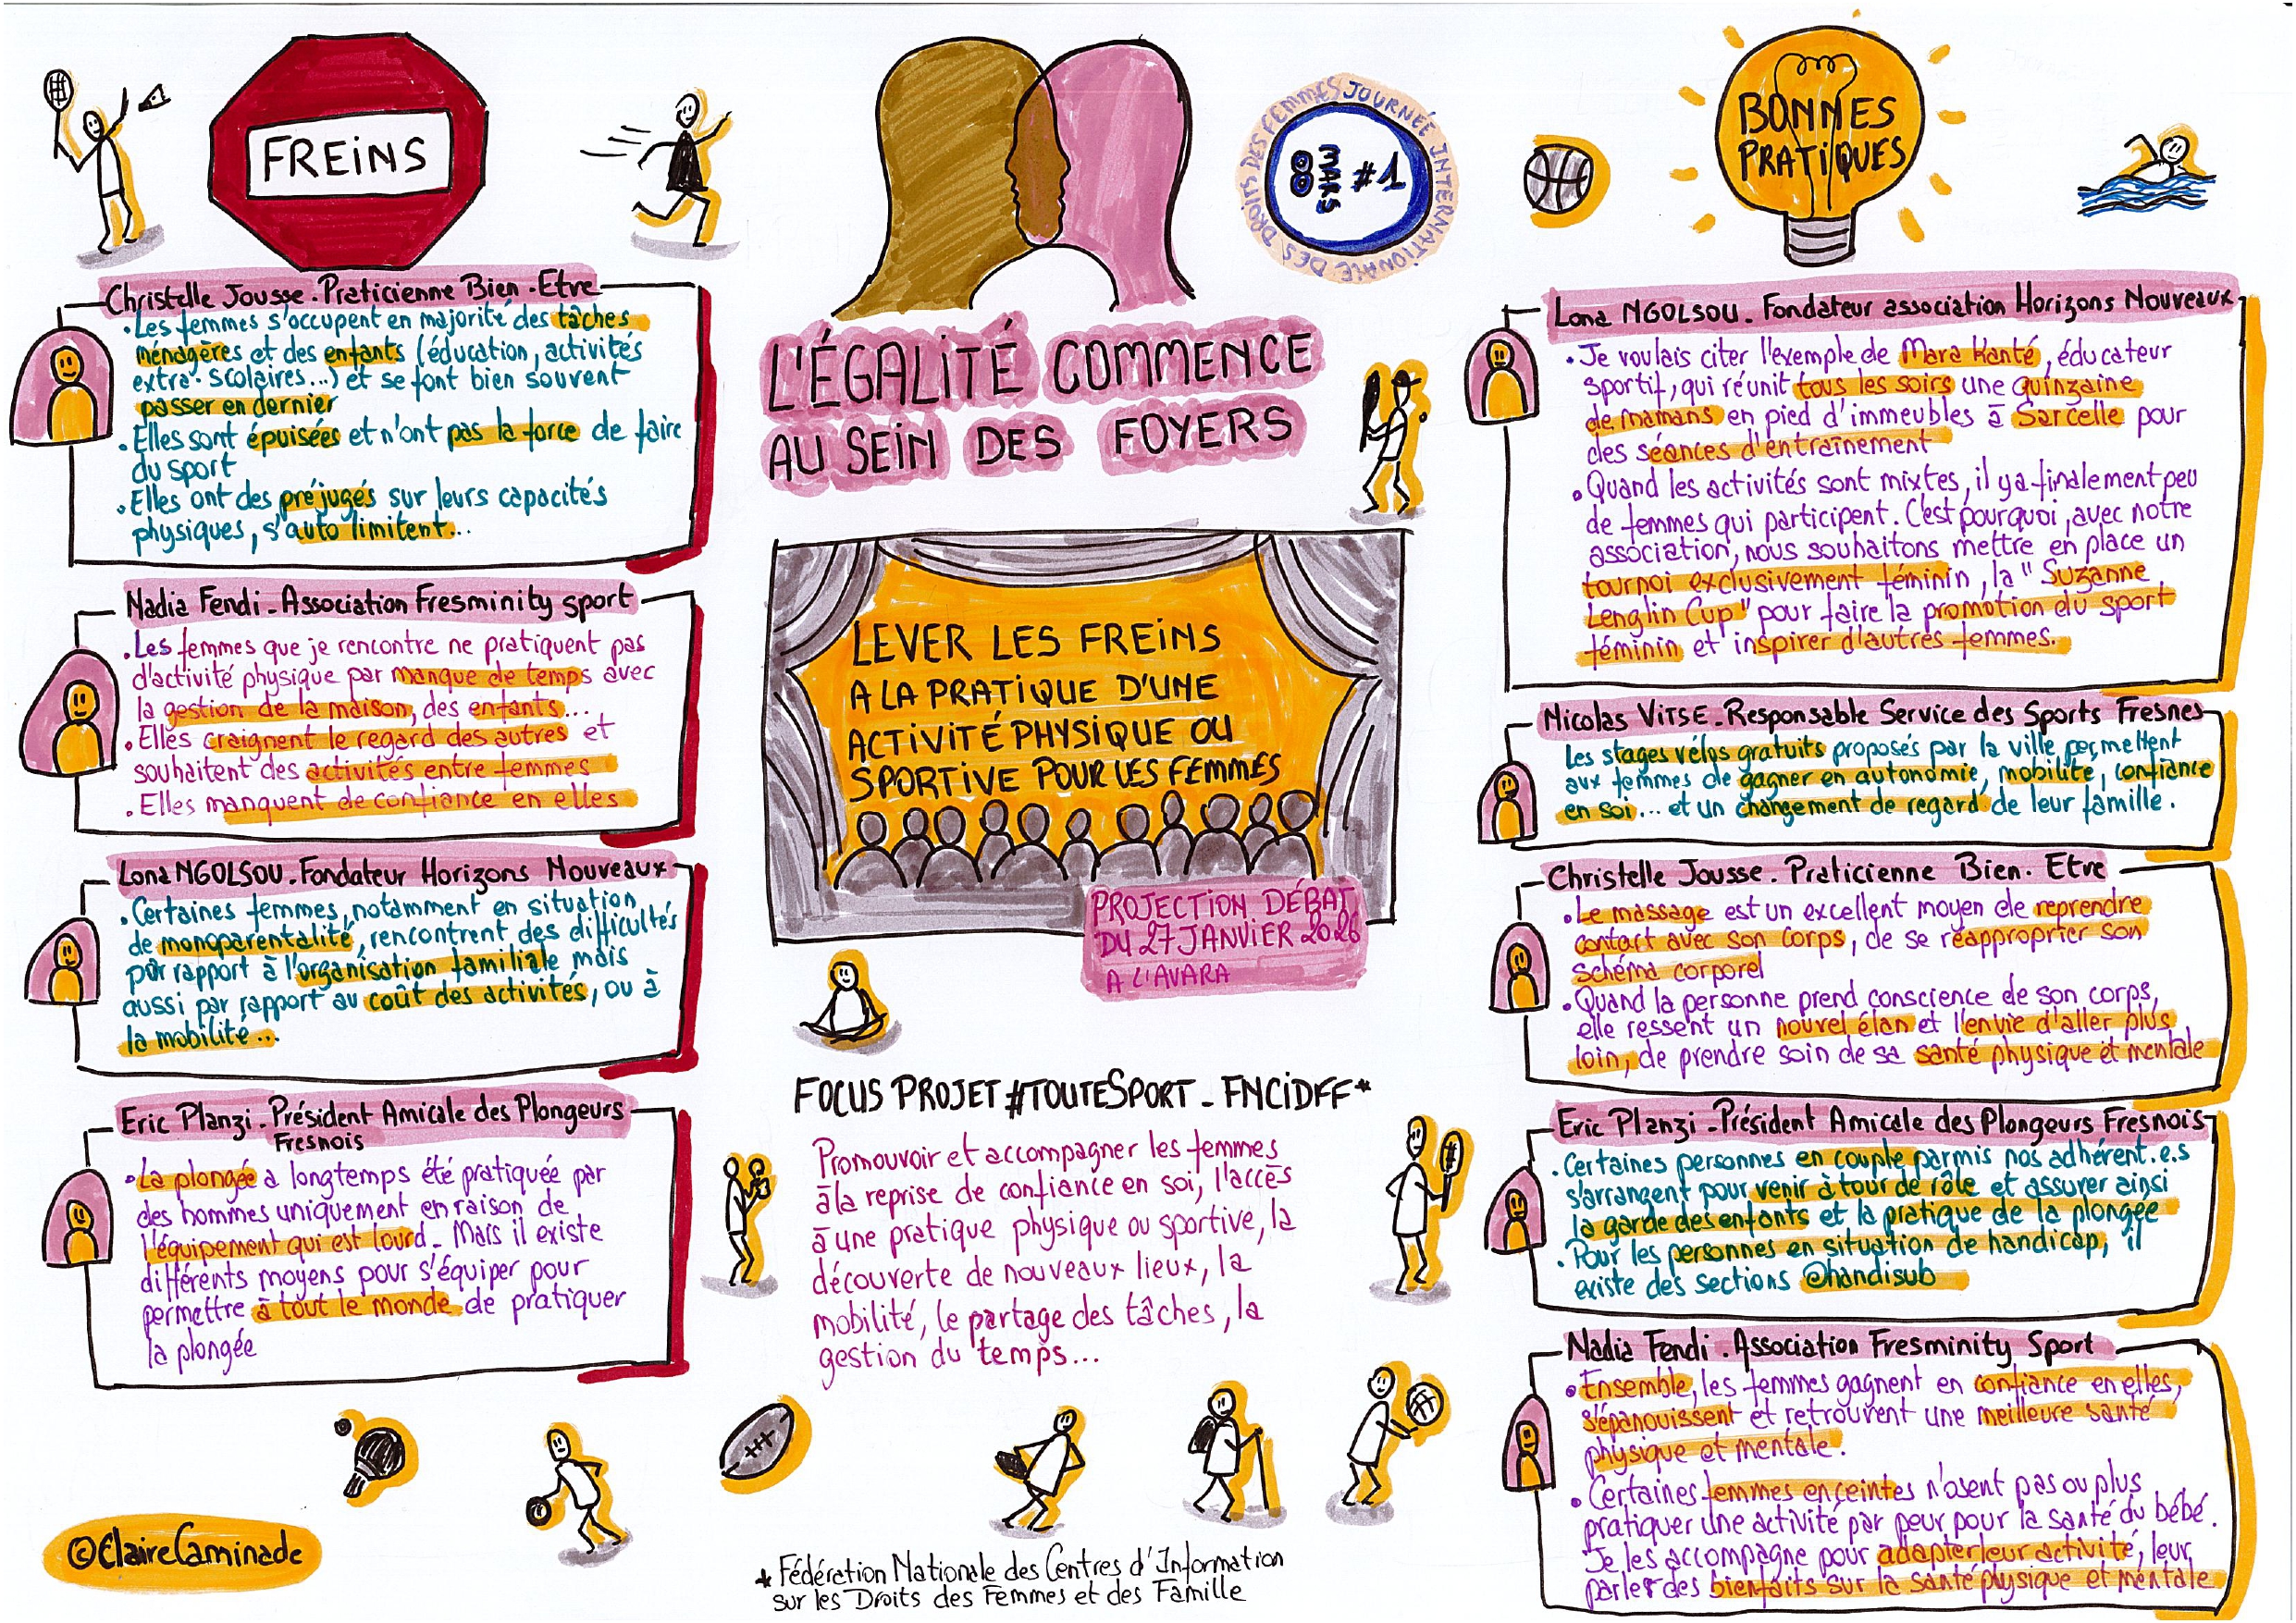 FREINS
Christelle Jousse - Praticienne Bien-Etre
• Les femmes s'occupent en majorité des tâches
ménagères et des enfants (éducation, activités
extra-scolaires...) et se font bien souvent
passer en dernier
• Elles sont épuisées et n'ont pas la force de faire
du sport
• Elles ont des préjugés sur leurs capacités
physiques, s'auto limitent...
Nadia Fendi - Association Fresminity sport
• Les femmes que je rencontre ne pratiquent pas
d'activité physique par manque de temps avec
la gestion de la maison, des enfants...
• Elles craignent le regard des autres et
souhaitent des activités entre femmes
• Elles manquent de confiance en elles
Lona NGOLSOU - Fondateur Horizons Nouveaux
• Certaines femmes, notamment en situation
de monoparentalité, rencontrent des difficultés
par rapport à l'organisation familiale mais
aussi par rapport au coût des activités, ou à
la mobilité...
Eric Planzi - Président Amicale des Plongeurs
Fresnois
• La plongée a longtemps été pratiquée par
des hommes uniquement en raison de
l'équipement qui est lourd - Mais il existe
différents moyens pour s'équiper pour
permettre à tout le monde de pratiquer
la plongée
©ClaireCaminade
JOURNÉE INTERNATIONALE DES DROITS DES FEMMES
8 MARS #1
L'ÉGALITÉ COMMENCE
AU SEIN DES FOYERS
LEVER LES FREINS
A LA PRATIQUE D'UNE
ACTIVITÉ PHYSIQUE OU
SPORTIVE POUR LES FEMMES
PROJECTION DÉBAT
DU 27 JANVIER 2026
A L'AVARA
FOCUS PROJET #TOUTESPORT - FNCIDFF*
Promouvoir et accompagner les femmes
à la reprise de confiance en soi, l'accès
à une pratique physique ou sportive, la
découverte de nouveaux lieux, la
mobilité, le partage des tâches, la
gestion du temps...
* Fédération Nationale des Centres d'Information
sur les Droits des Femmes et des Famille
BONNES
PRATIQUES
Lona NGOLSOU - Fondateur association Horizons Nouveaux
• Je voulais citer l'exemple de Mara Kanté, éducateur
sportif, qui réunit tous les soirs une quinzaine
de mamans en pied d'immeubles à Sarcelle pour
des séances d'entraînement
• Quand les activités sont mixtes, il y a finalement peu
de femmes qui participent. C'est pourquoi, avec notre
association, nous souhaitons mettre en place un
tournoi exclusivement féminin, la "Suzanne
Lenglin Cup" pour faire la promotion du sport
féminin et inspirer d'autres femmes.
Nicolas VITSE - Responsable Service des Sports Fresnes
Les stages vélos gratuits proposés par la ville permettent
aux femmes de gagner en autonomie, mobilité, confiance
en soi... et un changement de regard de leur famille.
Christelle Jousse - Praticienne Bien-Etre
• Le massage est un excellent moyen de reprendre
contact avec son corps, de se réapproprier son
schéma corporel
• Quand la personne prend conscience de son corps,
elle ressent un nouvel élan et l'envie d'aller plus
loin, de prendre soin de sa santé physique et mentale
Eric Planzi - Président Amicale des Plongeurs Fresnois
• Certaines personnes en couple parmis nos adhérent.e.s
s'arrangent pour venir à tour de rôle et assurer ainsi
la garde des enfants et la pratique de la plongée
• Pour les personnes en situation de handicap, il
existe des sections @handisub
Nadia Fendi - Association Fresminity Sport
• Ensemble, les femmes gagnent en confiance en elles,
s'épanouissent et retrouvent une meilleure santé
physique et mentale.
• Certaines femmes enceintes n'osent pas ou plus
pratiquer une activité par peur pour la santé du bébé.
Je les accompagne pour adapter leur activité, leur
parler des bienfaits sur la santé physique et mentale